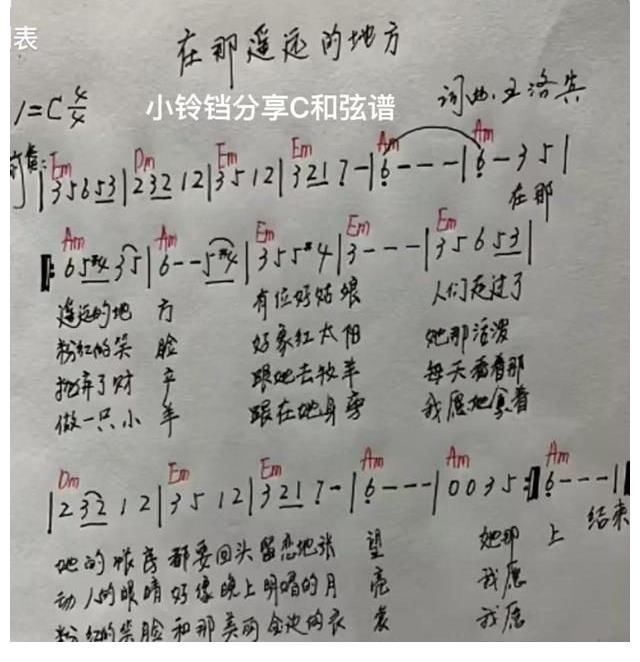 表
在那遥远的地方
1=C 4/4
小铃铛分享C和弦谱
词曲:王洛宾
Em Dm Em Em Am Am
|3 5 6 5 3|2 3 2 1 2|3 5 1 2|3 2 1 7 -|6 - - -|6 - 3 5|
在那
Am Am Em Em
6 5 #4 3 5|6 - - 5 #4|3 5 5 #4|3 - - -|3 5 6 5 3|
遥远的地 方 有位好姑娘 人们走过了
粉红的笑 脸 好象红太阳 她那活泼
抛弃了财 产 跟她去牧羊 每天看着那
做一只小 羊 跟在她身旁 我愿她拿着
Dm Em Em Am Am Am
|2 3 2 1 2|3 5 1 2|3 2 1 7 -|6 - - -|0 0 3 5:|6 - - -||
她的帐房都要回头留恋地张 望 她那 上 结束
动人的眼睛好像晚上明媚的月 亮 我愿
粉红的笑脸和那美丽金边的衣 裳 我愿